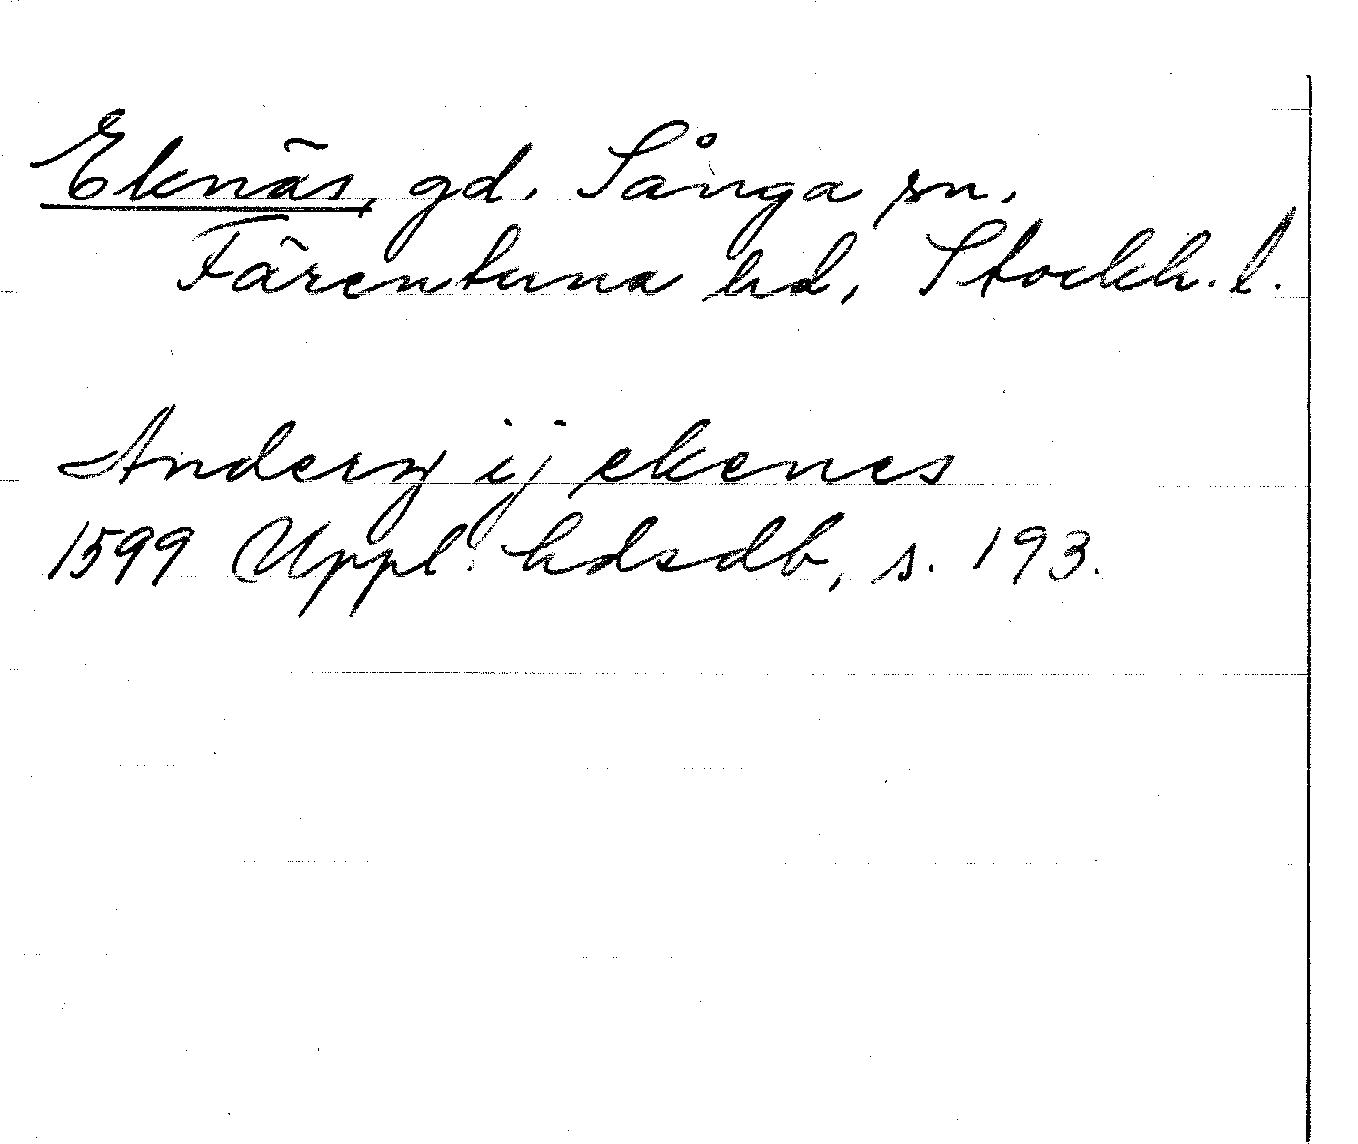 Eknäs, gd. Sånga sn.
Färentuna hd, Stockh. l.
Anderss ij ekenes
1599 Uppl. hdsdb, s. 193.